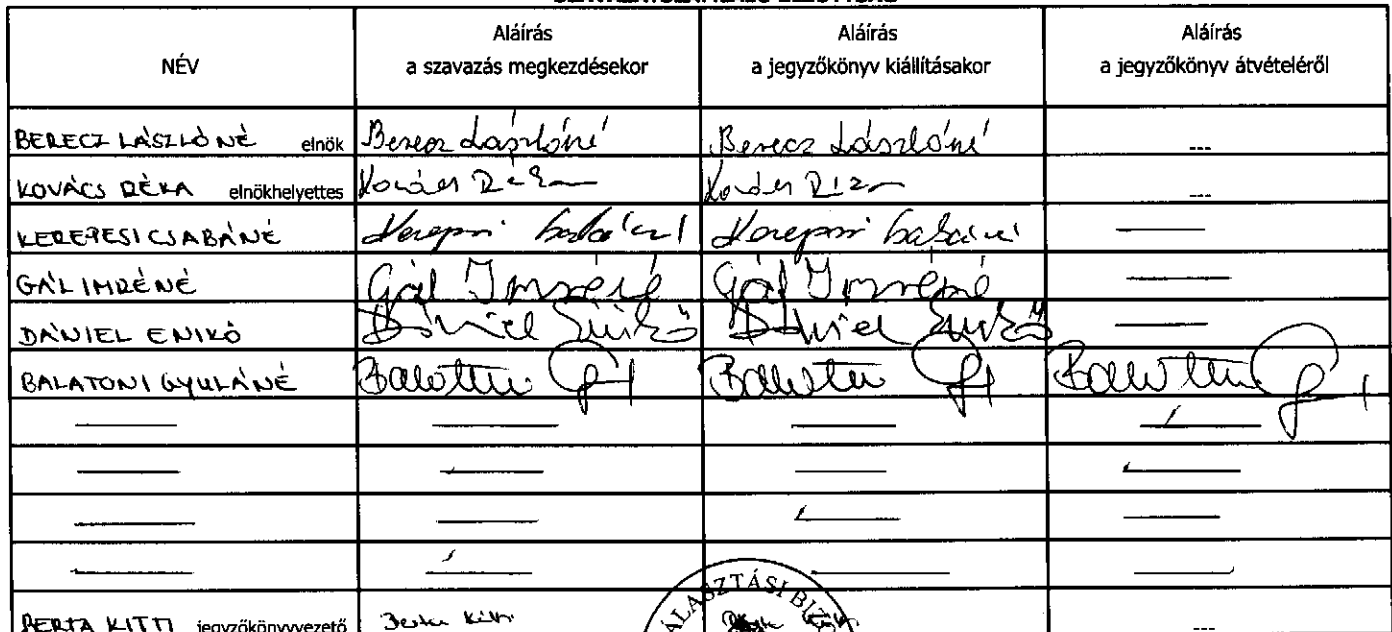 NÉV
Aláírás
a szavazás megkezdésekor
Aláírás
a jegyzőkönyv kiállításakor
Aláírás
a jegyzőkönyv átvételéről
BERECZ LÁSZLÓNÉ elnök Berecz Lászlóné Berecz Lászlóné ---
KOVÁCS RÉKA elnökhelyettes Kovács Réka Kovács Réka ---
KEREPESI CSABÁNÉ Kerepesi Csabáné Kerepesi Csabáné
GÁL IMRÉNÉ Gál Imréné Gál Imréné
DÁNIEL ENIKŐ Dániel Enikő Dániel Enikő
BALATONI GYULÁNÉ Balatoni Balatoni Balatoni
BERTA KITTI jegyzőkönyvvezető Berta Kitti ---